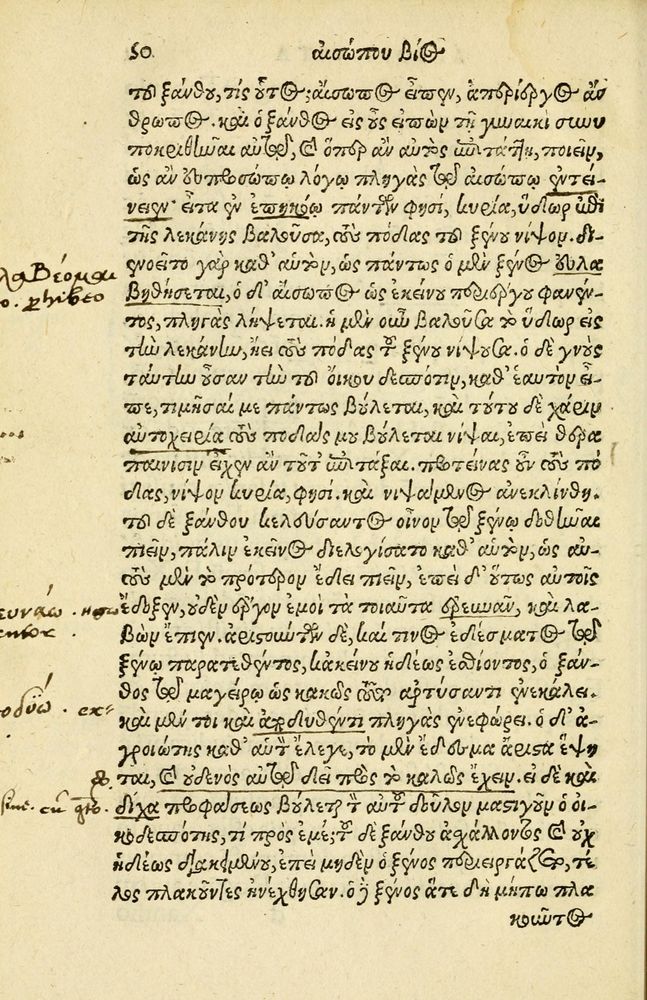 50 αἰσώπου βίος
τοῦ ξάνθου, τίς οὗτος; αἴσωπος εἶπεν, ἀπερίεργος ἄν
θρωπος. καὶ ὁ ξάνθος εἰς οὖς εἰπὼν τῇ γυναικὶ συνυ
ποκριθῆναι αὐτῷ, καὶ ὅπερ ἂν αὐτὸς ἐπιτάττῃ, ποιεῖν,
ὡς ἂν εὐπροσώπῳ λόγῳ πληγὰς τῷ αἰσώπῳ ἐντεί-
νειεν· εἶτα ἐν ἐπηκόῳ πάντων φησὶ, κυρία, ὕδωρ ἐπὶ
τῆς λεκάνης βαλοῦσα, τοὺς πόδας τοῦ ξένου νίψον. δι-
ενοεῖτο γὰρ καθ' αὑτὸν, ὡς πάντως ὁ μὲν ξένος εὐλα
βηθήσεται, ὁ δ' αἴσωπος ὡς ἐκείνου περιέργου φανέν-
τος, πληγὰς λήψεται. ἡ μὲν οὖν βαλοῦσα τὸ ὕδωρ εἰς
τὴν λεκάνην, ᾔει τοὺς πόδας τοῦ ξένου νίψουσα. ὁ δὲ γνοὺς
ταύτην οὖσαν τὴν τοῦ οἴκου δεσπότιν, καθ' ἑαυτὸν εἶ-
πε, τιμῆσαί με πάντως βούλεται, καὶ τούτου δὲ χάριν
αὐτοχειρία τοὺς πόδας μου βούλεται νίψαι, ἐπεὶ θερα
παινίσιν εἶχεν ἂν τοῦτ' ἐπιτάξαι. προτείνας οὖν τοὺς πό
δας, νίψον κυρία, φησί. καὶ νιψάμενος ἀνεκλίνθη.
τοῦ δὲ ξάνθου κελεύσαντος οἶνον τῷ ξένῳ δοθῆναι
πιεῖν, πάλιν ἐκεῖνος διελογίσατο καθ' αὑτὸν, ὡς αὐ-
τοὺς μὲν τὸ πρότερον ἔδει πιεῖν, ἐπεὶ δ' οὕτως αὐτοῖς
ἔδοξεν, οὐδὲν ἔργον ἐμοὶ τὰ τοιαῦτα ἐρευνᾶν, καὶ λα-
βὼν ἔπιεν. ἀριστώντων δὲ, καί τινος ἐδέσματος τῷ
ξένῳ παρατεθέντος, κἀκείνου ἡδέως ἐσθίοντος, ὁ ξάν-
θος τῷ μαγείρῳ ὡς κακῶς τοῦτ' ἀρτύσαντι ἐνεκάλει.
καὶ μέν τοι καὶ ἀποδυθέντι πληγὰς ἐνεφόρει. ὁ δ' ἀ-
γροιώτης καθ' αὑτὸν ἔλεγε, τὸ μὲν ἔδεσμα ἄριστα ἕψη
ται, καὶ οὐδενὸς αὐτῷ δεῖ πρὸς τὸ καλῶς ἔχειν. εἰ δὲ καὶ
δίχα προφάσεως βούλεται τὸν αὑτοῦ δοῦλον μαστιγοῦν ὁ οἰ-
κοδεσπότης, τί πρὸς ἐμέ; τοῦ δὲ ξάνθου ἀσχάλλοντος καὶ οὐχ
ἡδέως διακειμένου, ἐπεὶ μηδὲν ὁ ξένος περιεργάζεται, τέ
λος πλακοῦντες ἠνέχθησαν. ὁ δὲ ξένος ἅτε δὴ μήπω πλα
κοῦντος